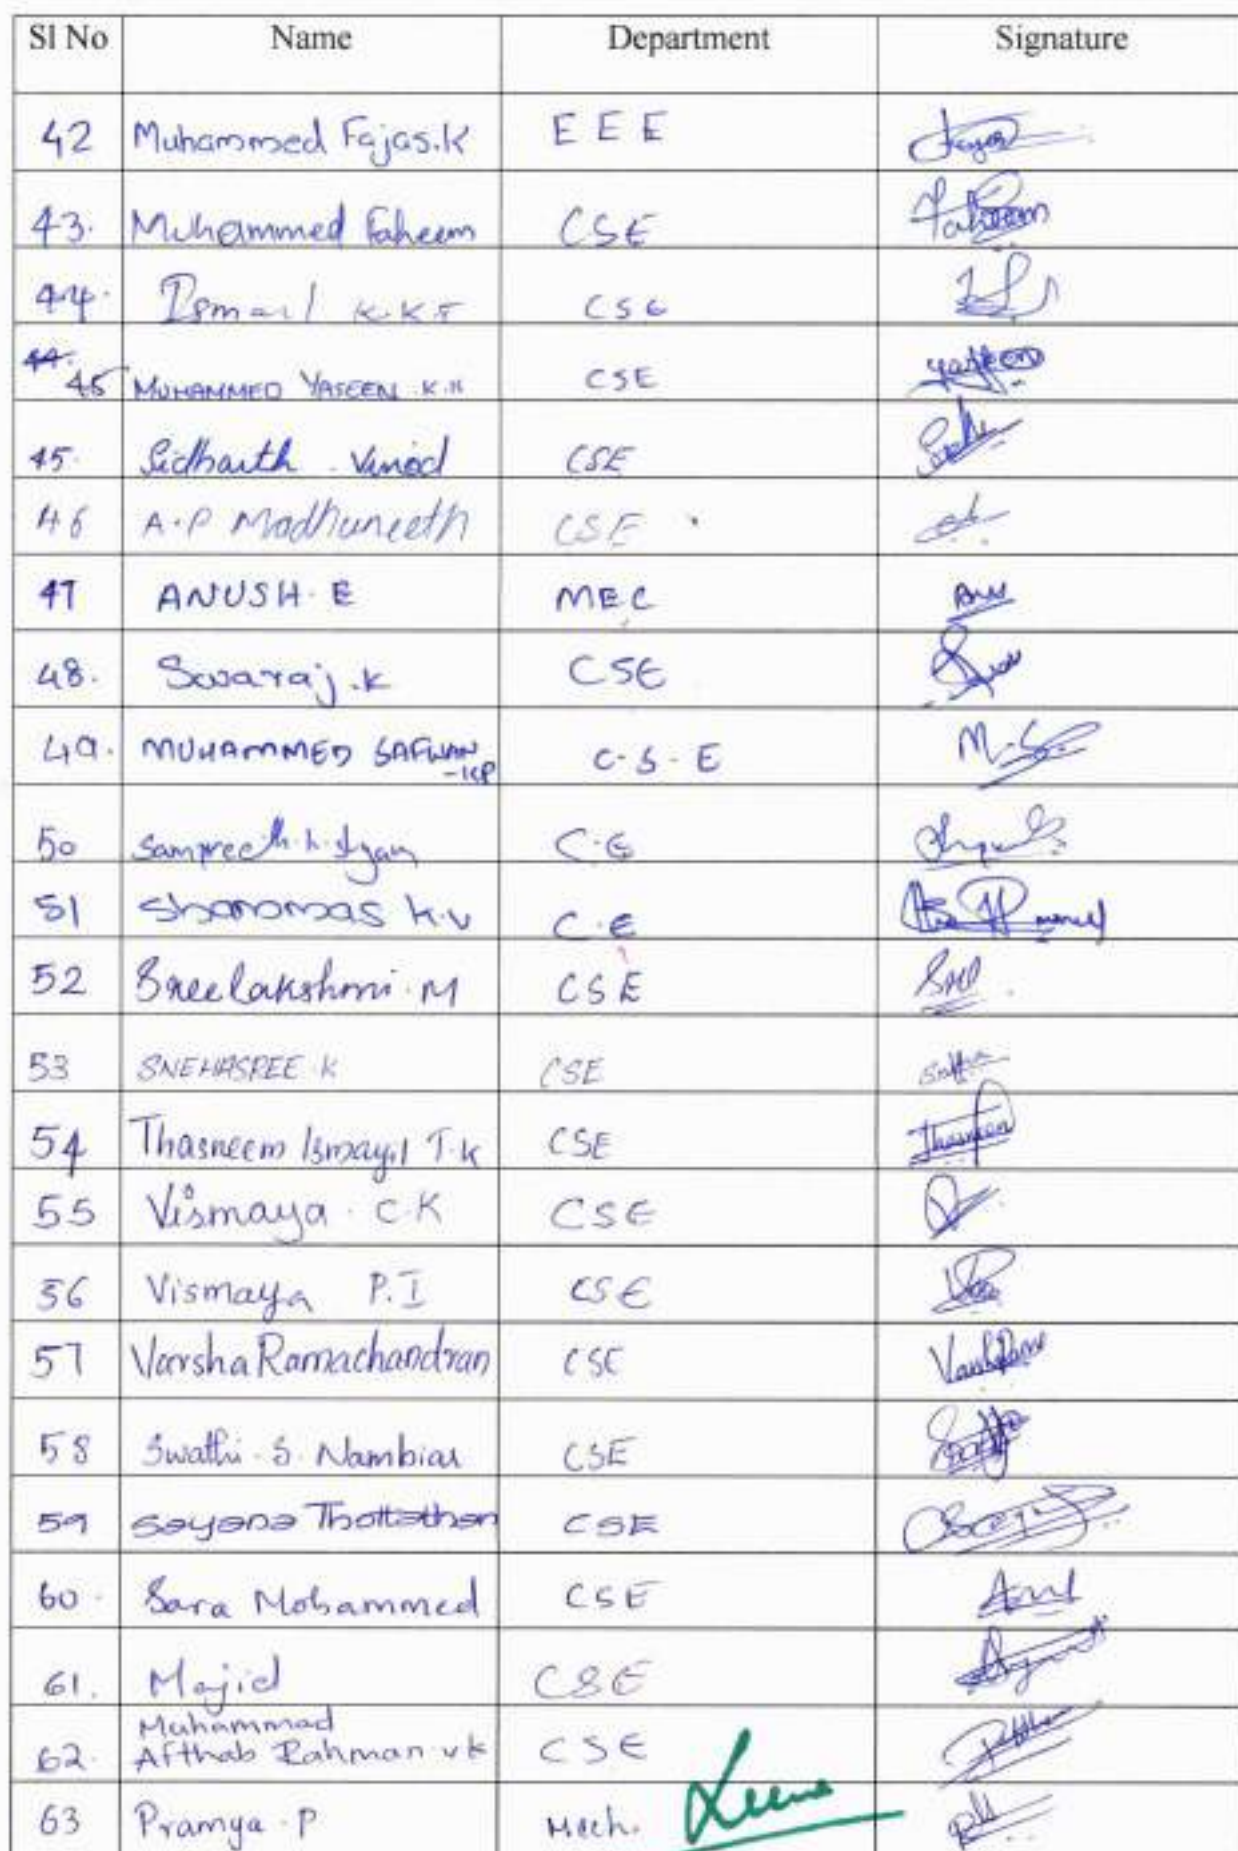 Sl No Name Department Signature
42 Muhammed Fajas.K E E E
43. Muhammed Faheem CSE Faheem
44. Ismail K.K.T CSE
44. 45 MUHAMMED YASEEN .K.H CSE Yaseen
45. Sidharth . Vinod CSE
46 A.P Madhuneeth CSE
47 ANUSH. E MEC Anu
48. Swaraj.k CSE
49. MUHAMMED SAFWAN C.S.E M.S.
-KP
50 Sampreeth. C.E
51 Shammas K.V C.E
52 Sreelakshmi.M CSE Sree
53 SNEHASREE.K CSE
54 Thasneem Ismayil T.k CSE Thasneem
55 Vismaya. C.K CSE
56 Vismaya P.I CSE
57 Varsha Ramachandran CSE
58 Swathi.S. Nambiar CSE
59 Sayana Thottathan CSE
60. Sara Mohammed CSE
61. Majid CSE
Muhammad
62. Afthab Rahman vk CSE
63 Pramya.P Mech. Leena